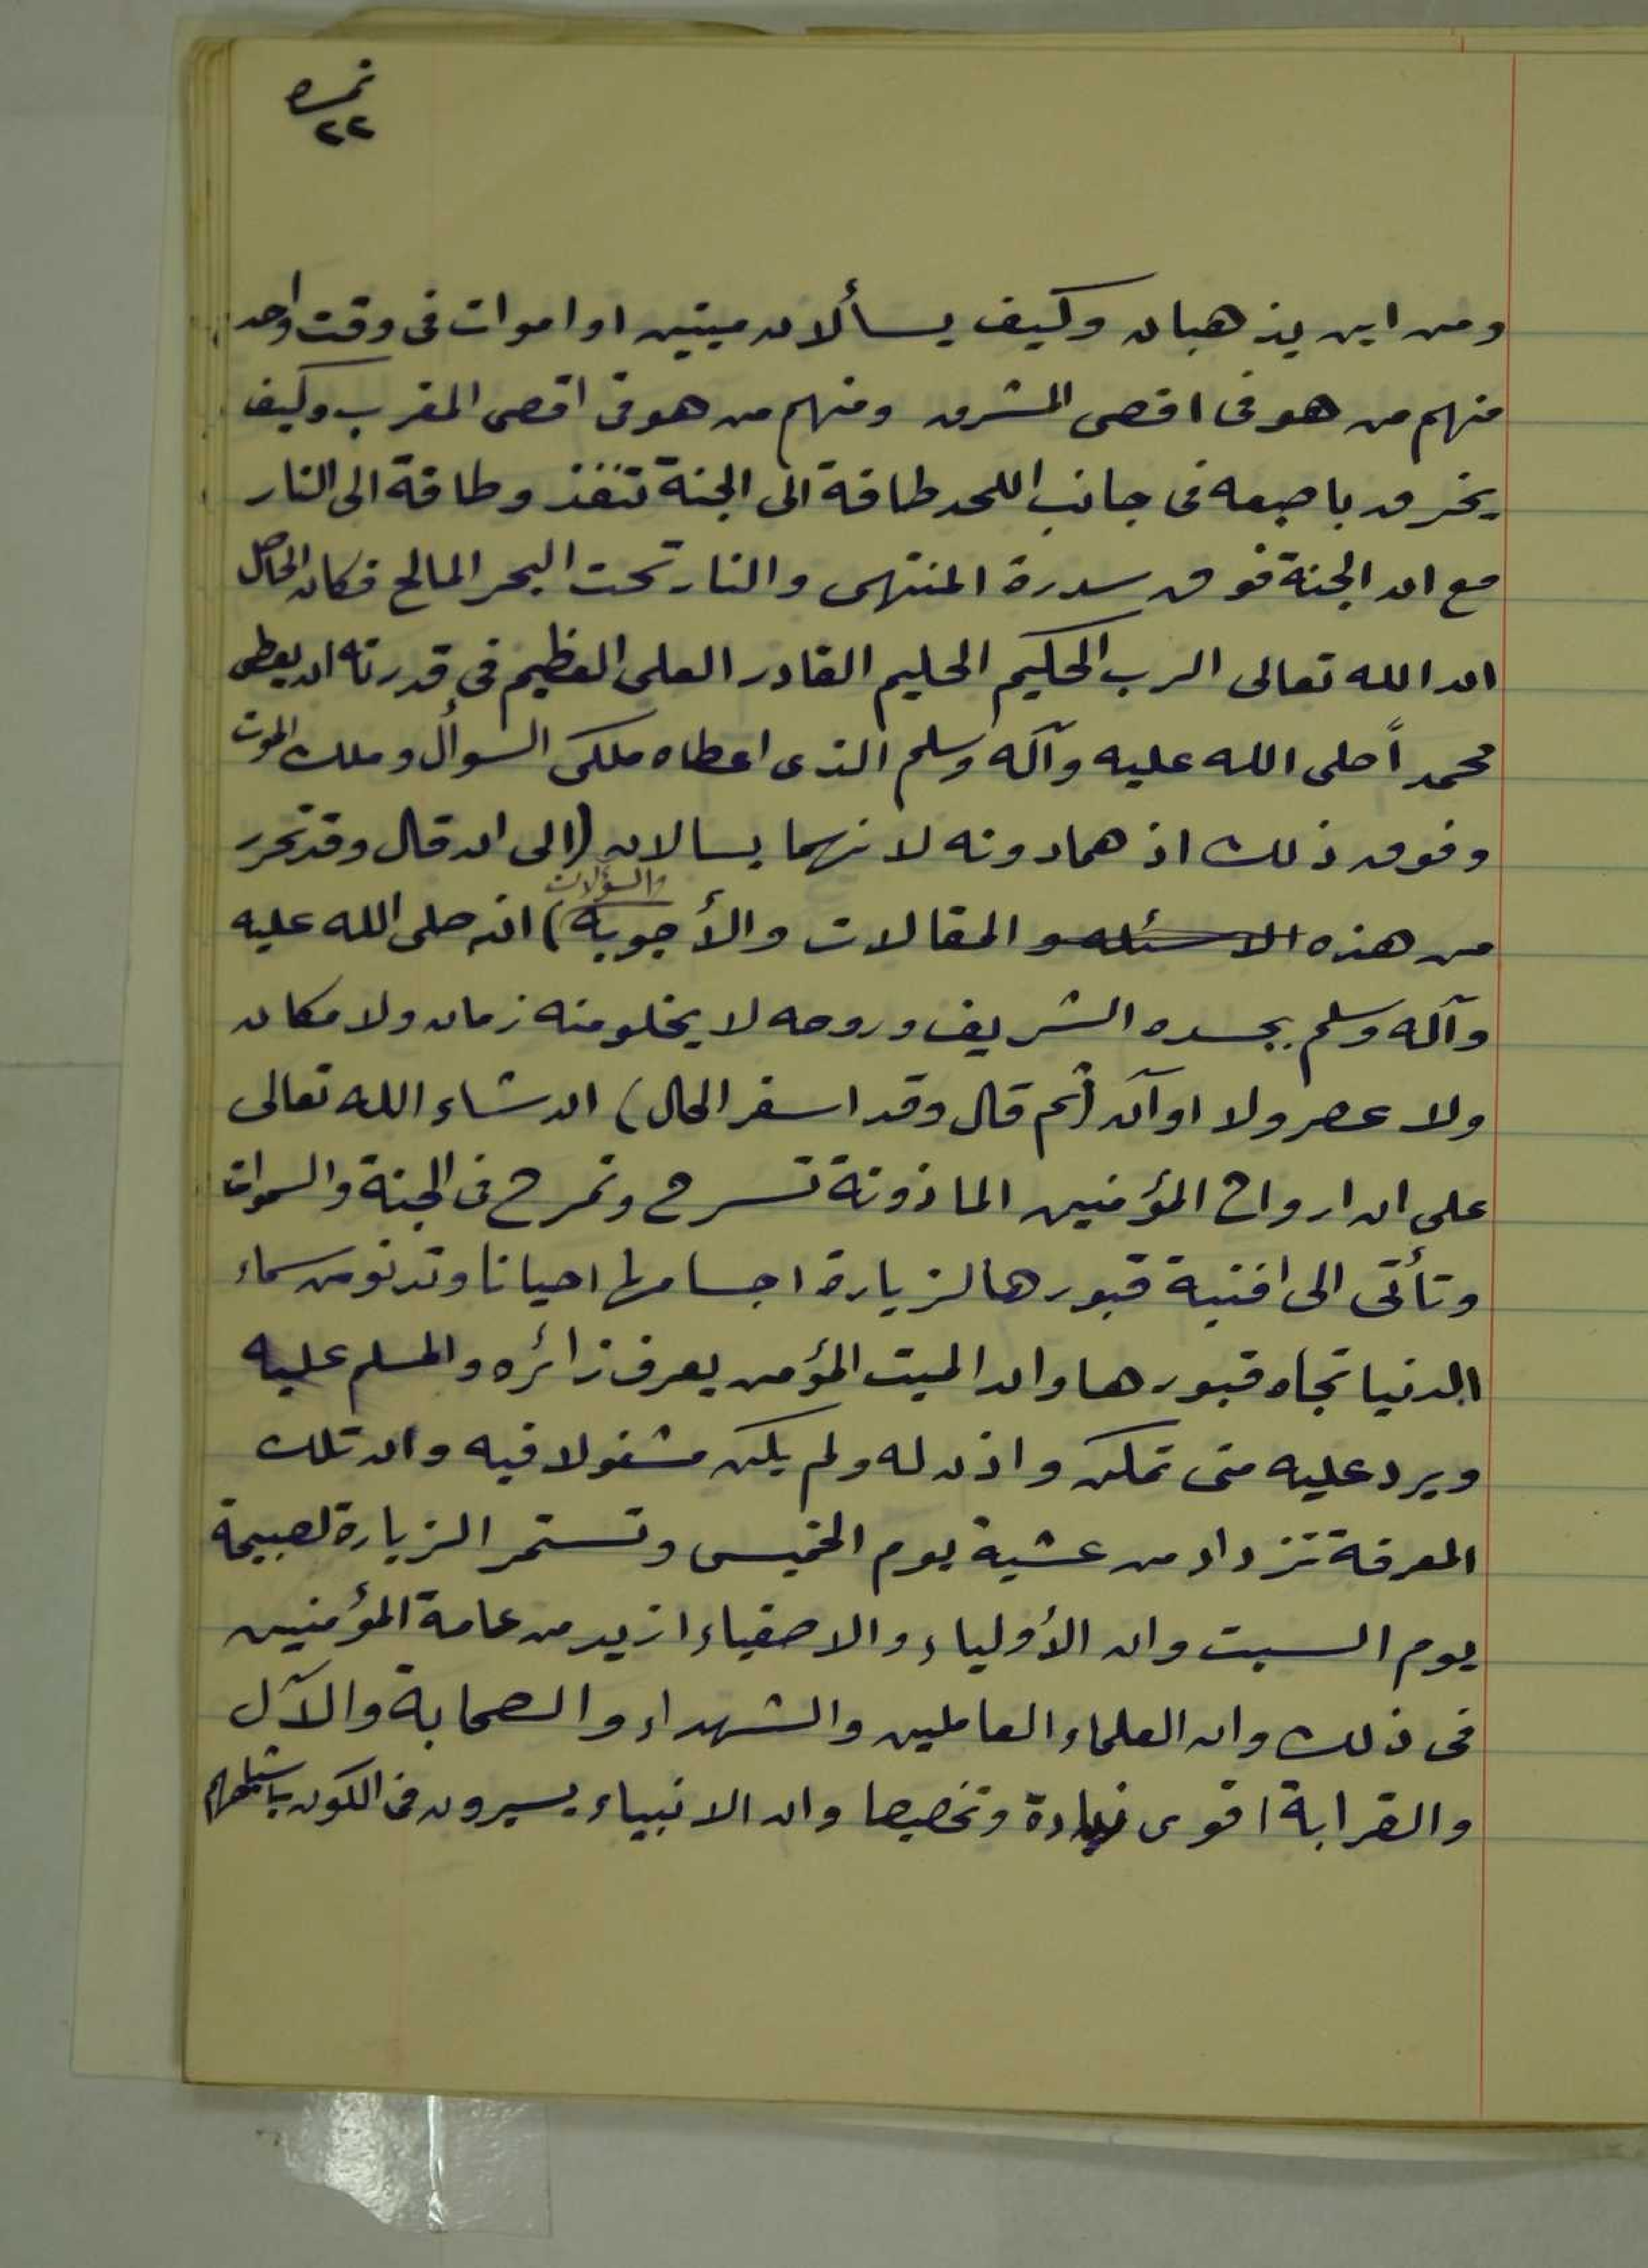 نمره
٢٢
ومن اين يذهبان وكيف يسألان ميتين او اموات فى وقت واحد
منهم من هو فى اقصى المشرق ومنهم من هو فى اقصى المغرب وكيف
يخرق باصبعه فى جانب اللحد طاقة الى الجنة تنفذ وطاقة الى النار
مع ان الجنة فوق سدرة المنتهى والنار تحت البحر المالح فكان الحاصل
ان الله تعالى الرب الحكيم الحليم القادر العلى العظيم فى قدرته ان يعطى
محمداً صلى الله عليه وآله وسلم الذى اعطاه ملكى السوأل وملك الموت
وفوق ذلك اذ هما دونه لانهما يسالان (الى ان قال وقد تحرر
من هذه الاسئله و المقالات والسؤلات والأجوبة) انه صلى الله عليه
وآله وسلم بجسده الشريف وروحه لا يخلو منه زمان ولا مكان
ولا عصر ولا اوآن (ثم قال وقد اسفر الحال) ان شاء الله تعالى
على ان ارواح المؤمنين الماذونة تسرح وتمرح فى الجنة والسموات
وتأتى الى افنية قبورها لزيارة اجسامها احيانا وتدنو من سماء
الدنيا تجاه قبورها وان الميت المؤمن يعرف زائره والمسلم عليه
ويرد عليه متى تمكن واذن له ولم يكن مشغولا فيه وان تلك
المعرفة تزداد من عشية يوم الخميس وتستمر الزيارة لصبيحة
يوم السبت وان الأولياء والاصفياء ازيد من عامة المؤمنين
فى ذلك وان العلماء العاملين والشهداء والصحابة والآل
والقرابة اقوى زيادة وتخصيصا وان الانبياء يسيرون فى الكون باشباحهم